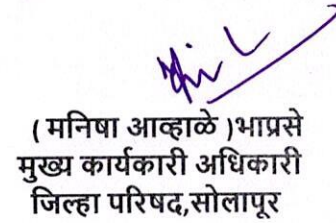 ( मनिषा आव्हाळे )भाप्रसे
मुख्य कार्यकारी अधिकारी
जिल्हा परिषद,सोलापूर